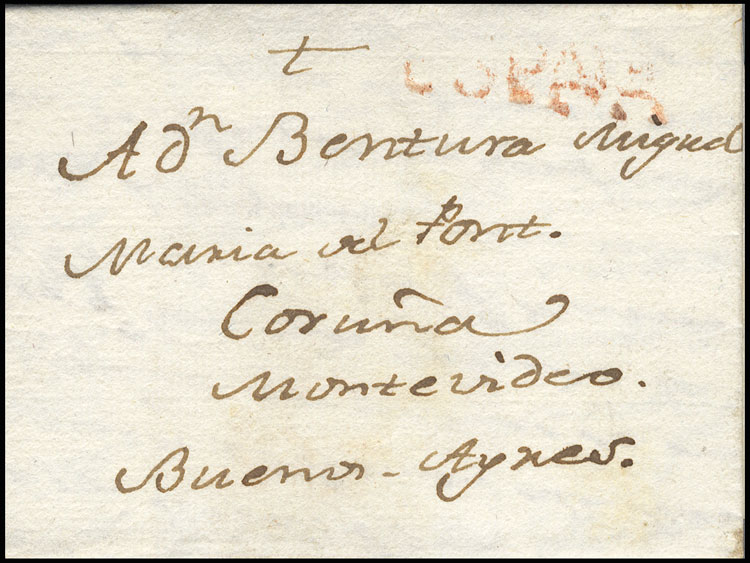 ESPAÑA
A Dn Bentura Miguel
Maria del Pont.
Coruña
Montevideo.
Buenos-Ayres.